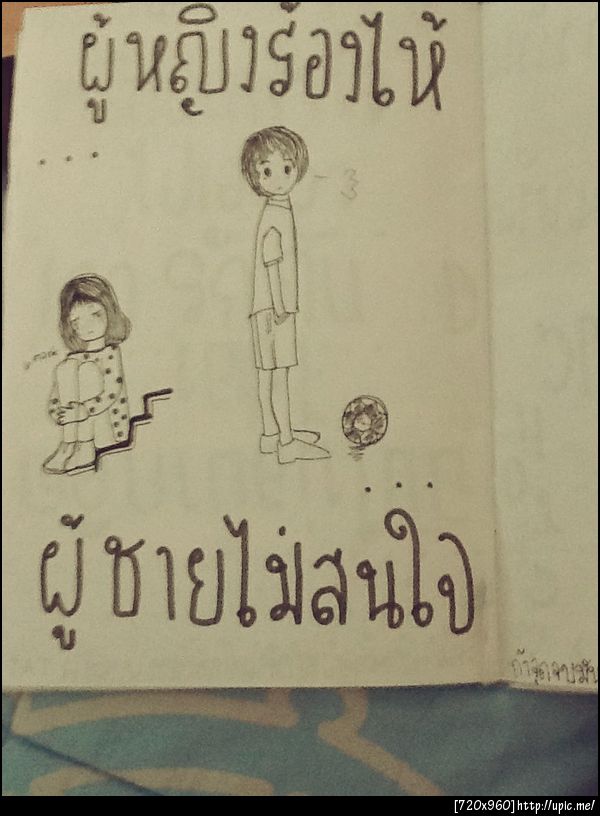 ผู้หญิงร้องไห้
...
...
ผู้ชายไม่สนใจ
[720x960]http://upic.me/